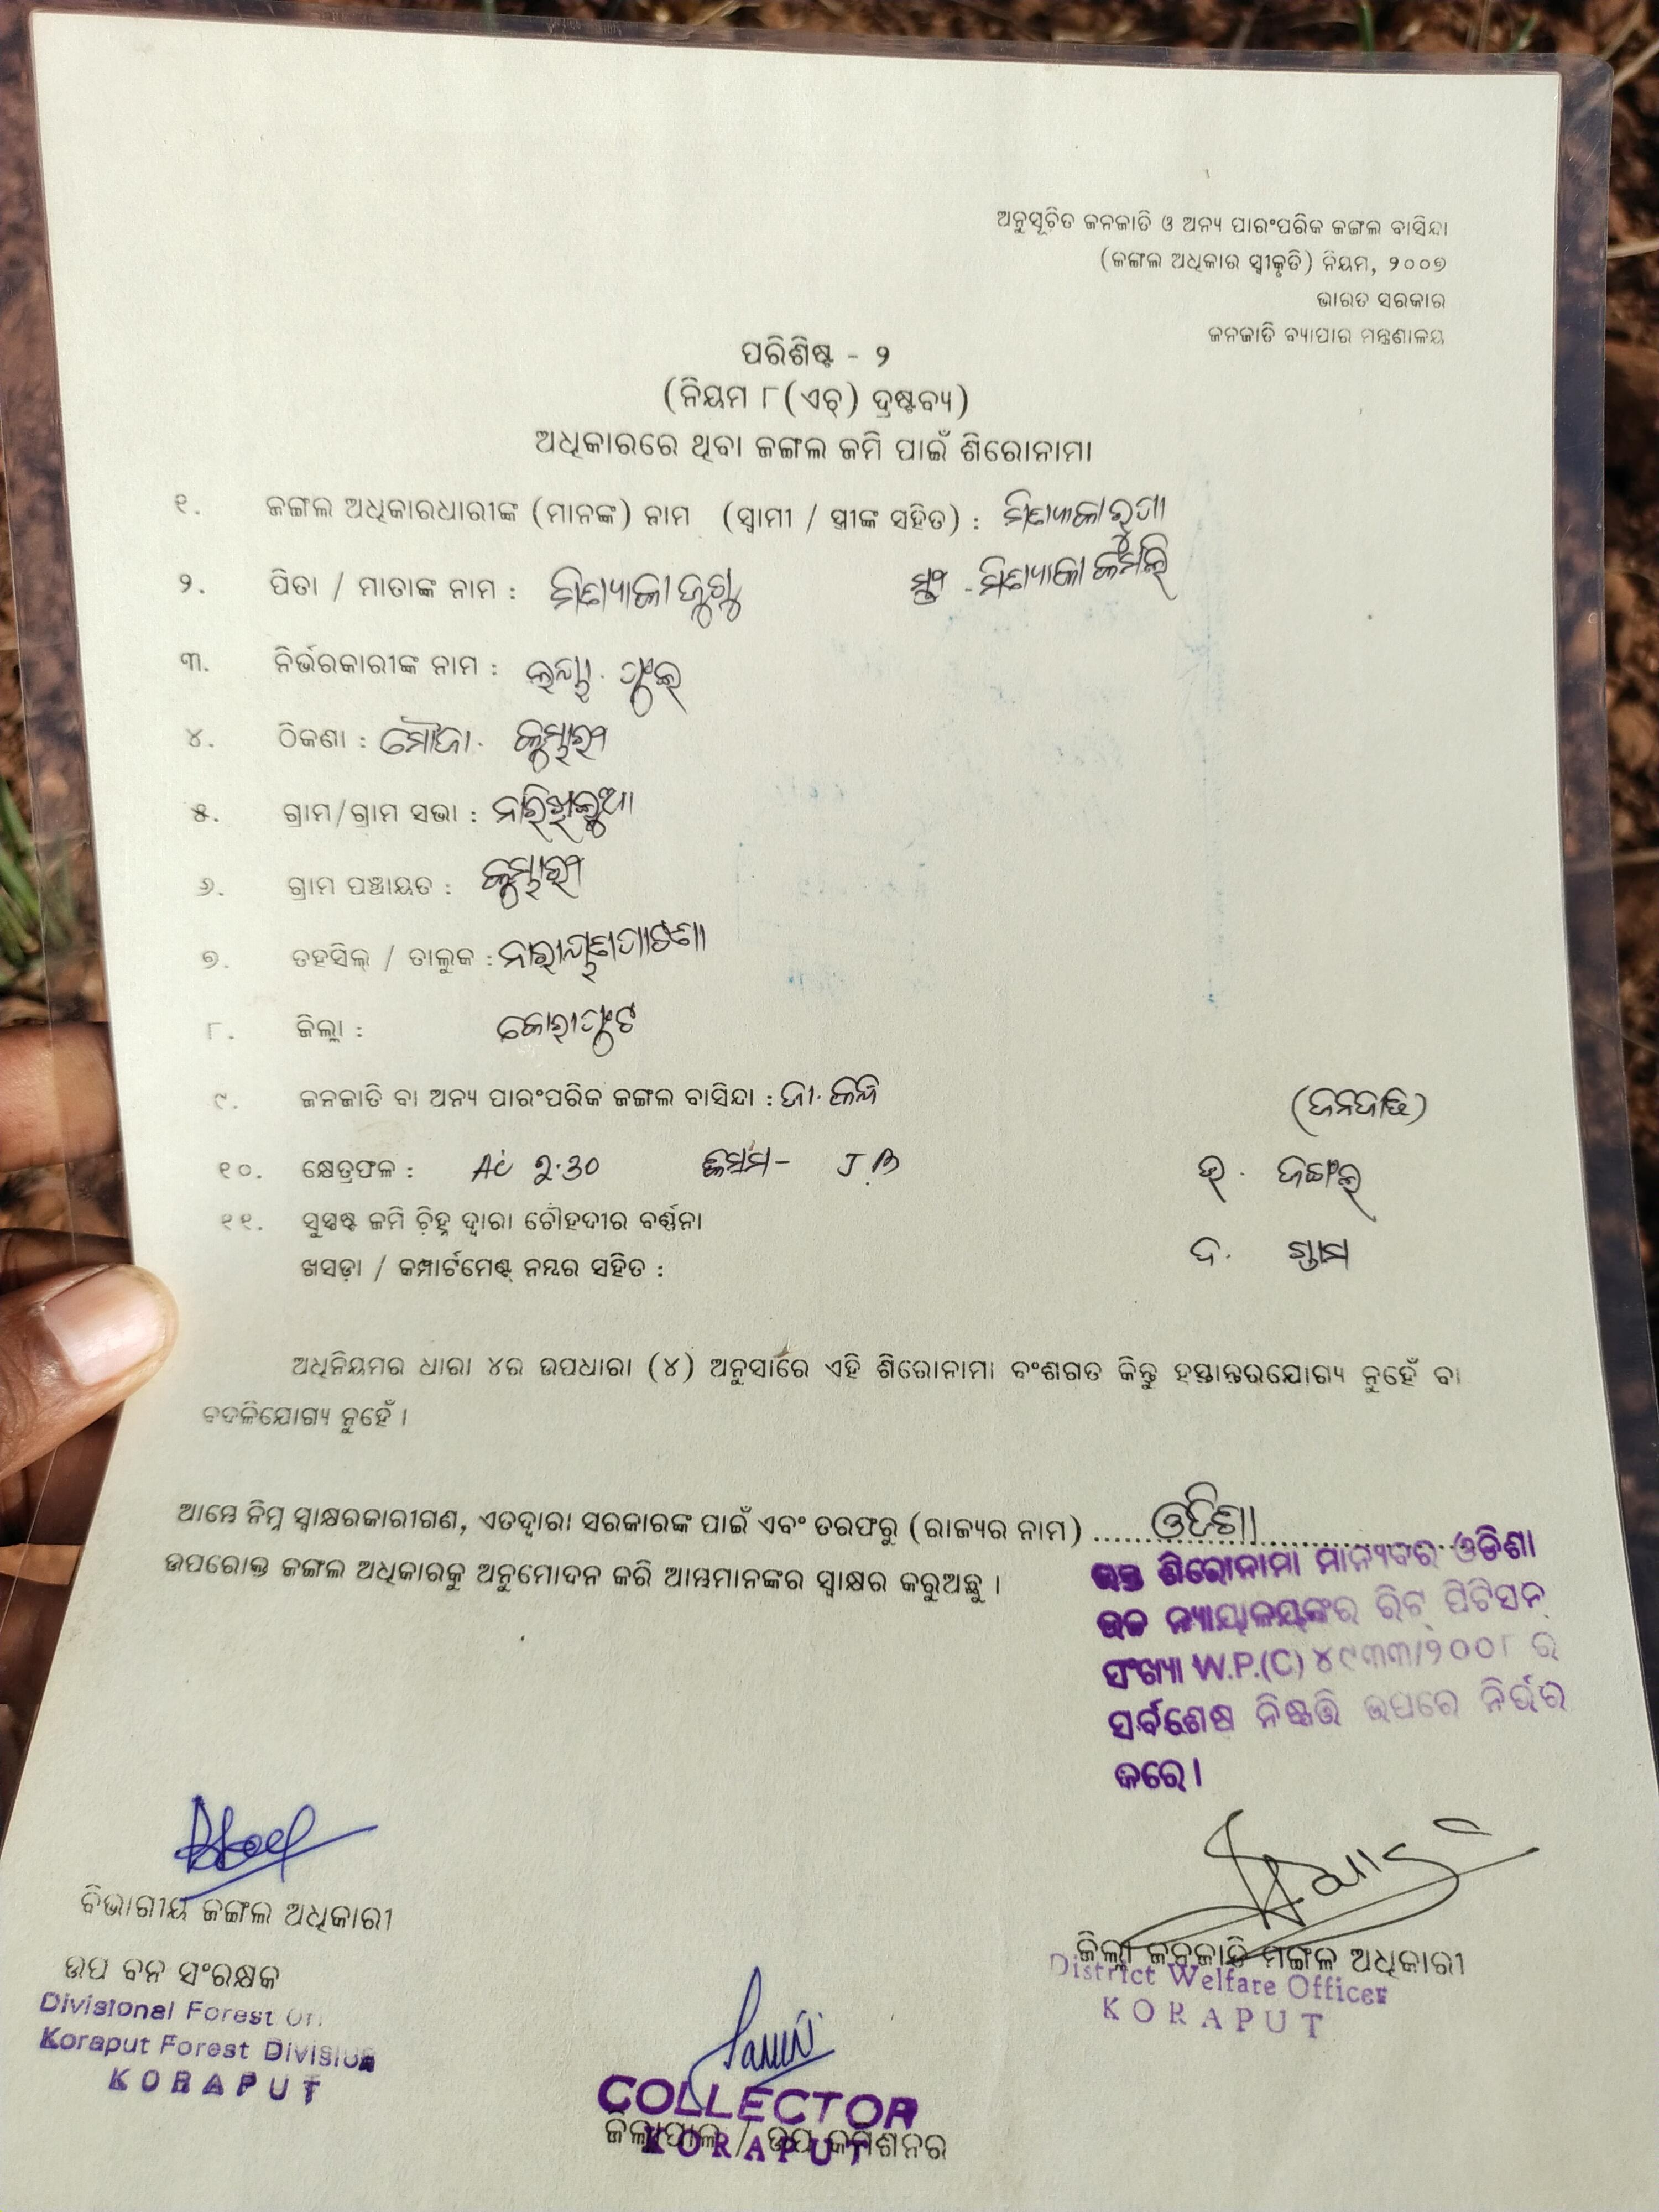 ଅନୁସୂଚିତ ଜନଜାତି ଓ ଅନ୍ୟ ପାରଂପରିକ ଜଙ୍ଗଲ ବାସିନ୍ଦା
(ଜଙ୍ଗଲ ଅଧିକାର ସ୍ୱୀକୃତି) ନିୟମ, ୨୦୦୭
ଭାରତ ସରକାର
ଜନଜାତି ବ୍ୟାପାର ମନ୍ତ୍ରଣାଳୟ
ପରିଶିଷ୍ଟ - ୨
(ନିୟମ ୮(ଏଚ୍) ଦ୍ରଷ୍ଟବ୍ୟ)
ଅଧିକାରରେ ଥିବା ଜଙ୍ଗଲ ଜମି ପାଇଁ ଶିରୋନାମା
୧. ଜଙ୍ଗଲ ଅଧିକାରଧାରୀଙ୍କ (ମାନଙ୍କ) ନାମ (ସ୍ୱାମୀ / ସ୍ତ୍ରୀଙ୍କ ସହିତ) :
୨. ପିତା / ମାତାଙ୍କ ନାମ :
୩. ନିର୍ଭରକାରୀଙ୍କ ନାମ :
୪. ଠିକଣା : ମୌଜା. କୁମ୍ଭାରୀ
୫. ଗ୍ରାମ/ଗ୍ରାମ ସଭା :
୬. ଗ୍ରାମ ପଞ୍ଚାୟତ : କୁମ୍ଭାରୀ
୭. ତହସିଲ୍ / ତାଲୁକ : ନାରାୟଣପାଟଣା
୮. ଜିଲ୍ଲା : କୋରାପୁଟ
୯. ଜନଜାତି ବା ଅନ୍ୟ ପାରଂପରିକ ଜଙ୍ଗଲ ବାସିନ୍ଦା : ଜା. କନ୍ଧ (ଜନଜାତି)
୧୦. କ୍ଷେତ୍ରଫଳ : AC 2.30 କିସମ - J.B ଉ. ଜଙ୍ଗଲ
୧୧. ସୁସ୍ପଷ୍ଟ ଜମି ଚିହ୍ନ ଦ୍ୱାରା ଚୌହଦୀର ବର୍ଣ୍ଣନା
ଖସଡ଼ା / କମ୍ପାର୍ଟମେଣ୍ଟ ନମ୍ବର ସହିତ : ଦ.
ଅଧିନିୟମର ଧାରା ୪ର ଉପଧାରା (୪) ଅନୁସାରେ ଏହି ଶିରୋନାମା ବଂଶଗତ କିନ୍ତୁ ହସ୍ତାନ୍ତରଯୋଗ୍ୟ ନୁହେଁ ବା
ବଦଳିଯୋଗ୍ୟ ନୁହେଁ ।
ଆମ୍ଭେ ନିମ୍ନ ସ୍ୱାକ୍ଷରକାରୀଗଣ, ଏତଦ୍ୱାରା ସରକାରଙ୍କ ପାଇଁ ଏବଂ ତରଫରୁ (ରାଜ୍ୟର ନାମ) ..... ଓଡିଶା .....
ଉପରୋକ୍ତ ଜଙ୍ଗଲ ଅଧିକାରକୁ ଅନୁମୋଦନ କରି ଆମ୍ଭମାନଙ୍କର ସ୍ୱାକ୍ଷର କରୁଅଛୁ ।
ଉକ୍ତ ଶିରୋନାମା ମାନ୍ୟବର ଓଡିଶା
ଉଚ୍ଚ ନ୍ୟାୟାଳୟଙ୍କର ରିଟ୍ ପିଟିସନ୍
ସଂଖ୍ୟା W.P.(C) ୪୯୩୩/୨୦୦୮ ର
ସର୍ବଶେଷ ନିଷ୍ପତ୍ତି ଉପରେ ନିର୍ଭର
କରେ ।
ବିଭାଗୀୟ ଜଙ୍ଗଲ ଅଧିକାରୀ
ଉପ ବନ ସଂରକ୍ଷକ
Divisional Forest
Koraput Forest Division
KORAPUT
ଜିଲ୍ଲା ଜନଜାତି ମଙ୍ଗଳ ଅଧିକାରୀ
District Welfare Officer
KORAPUT
COLLECTOR
ଜିଲ୍ଲାପାଳ / ଉପ କମିଶନର
KORAPUT